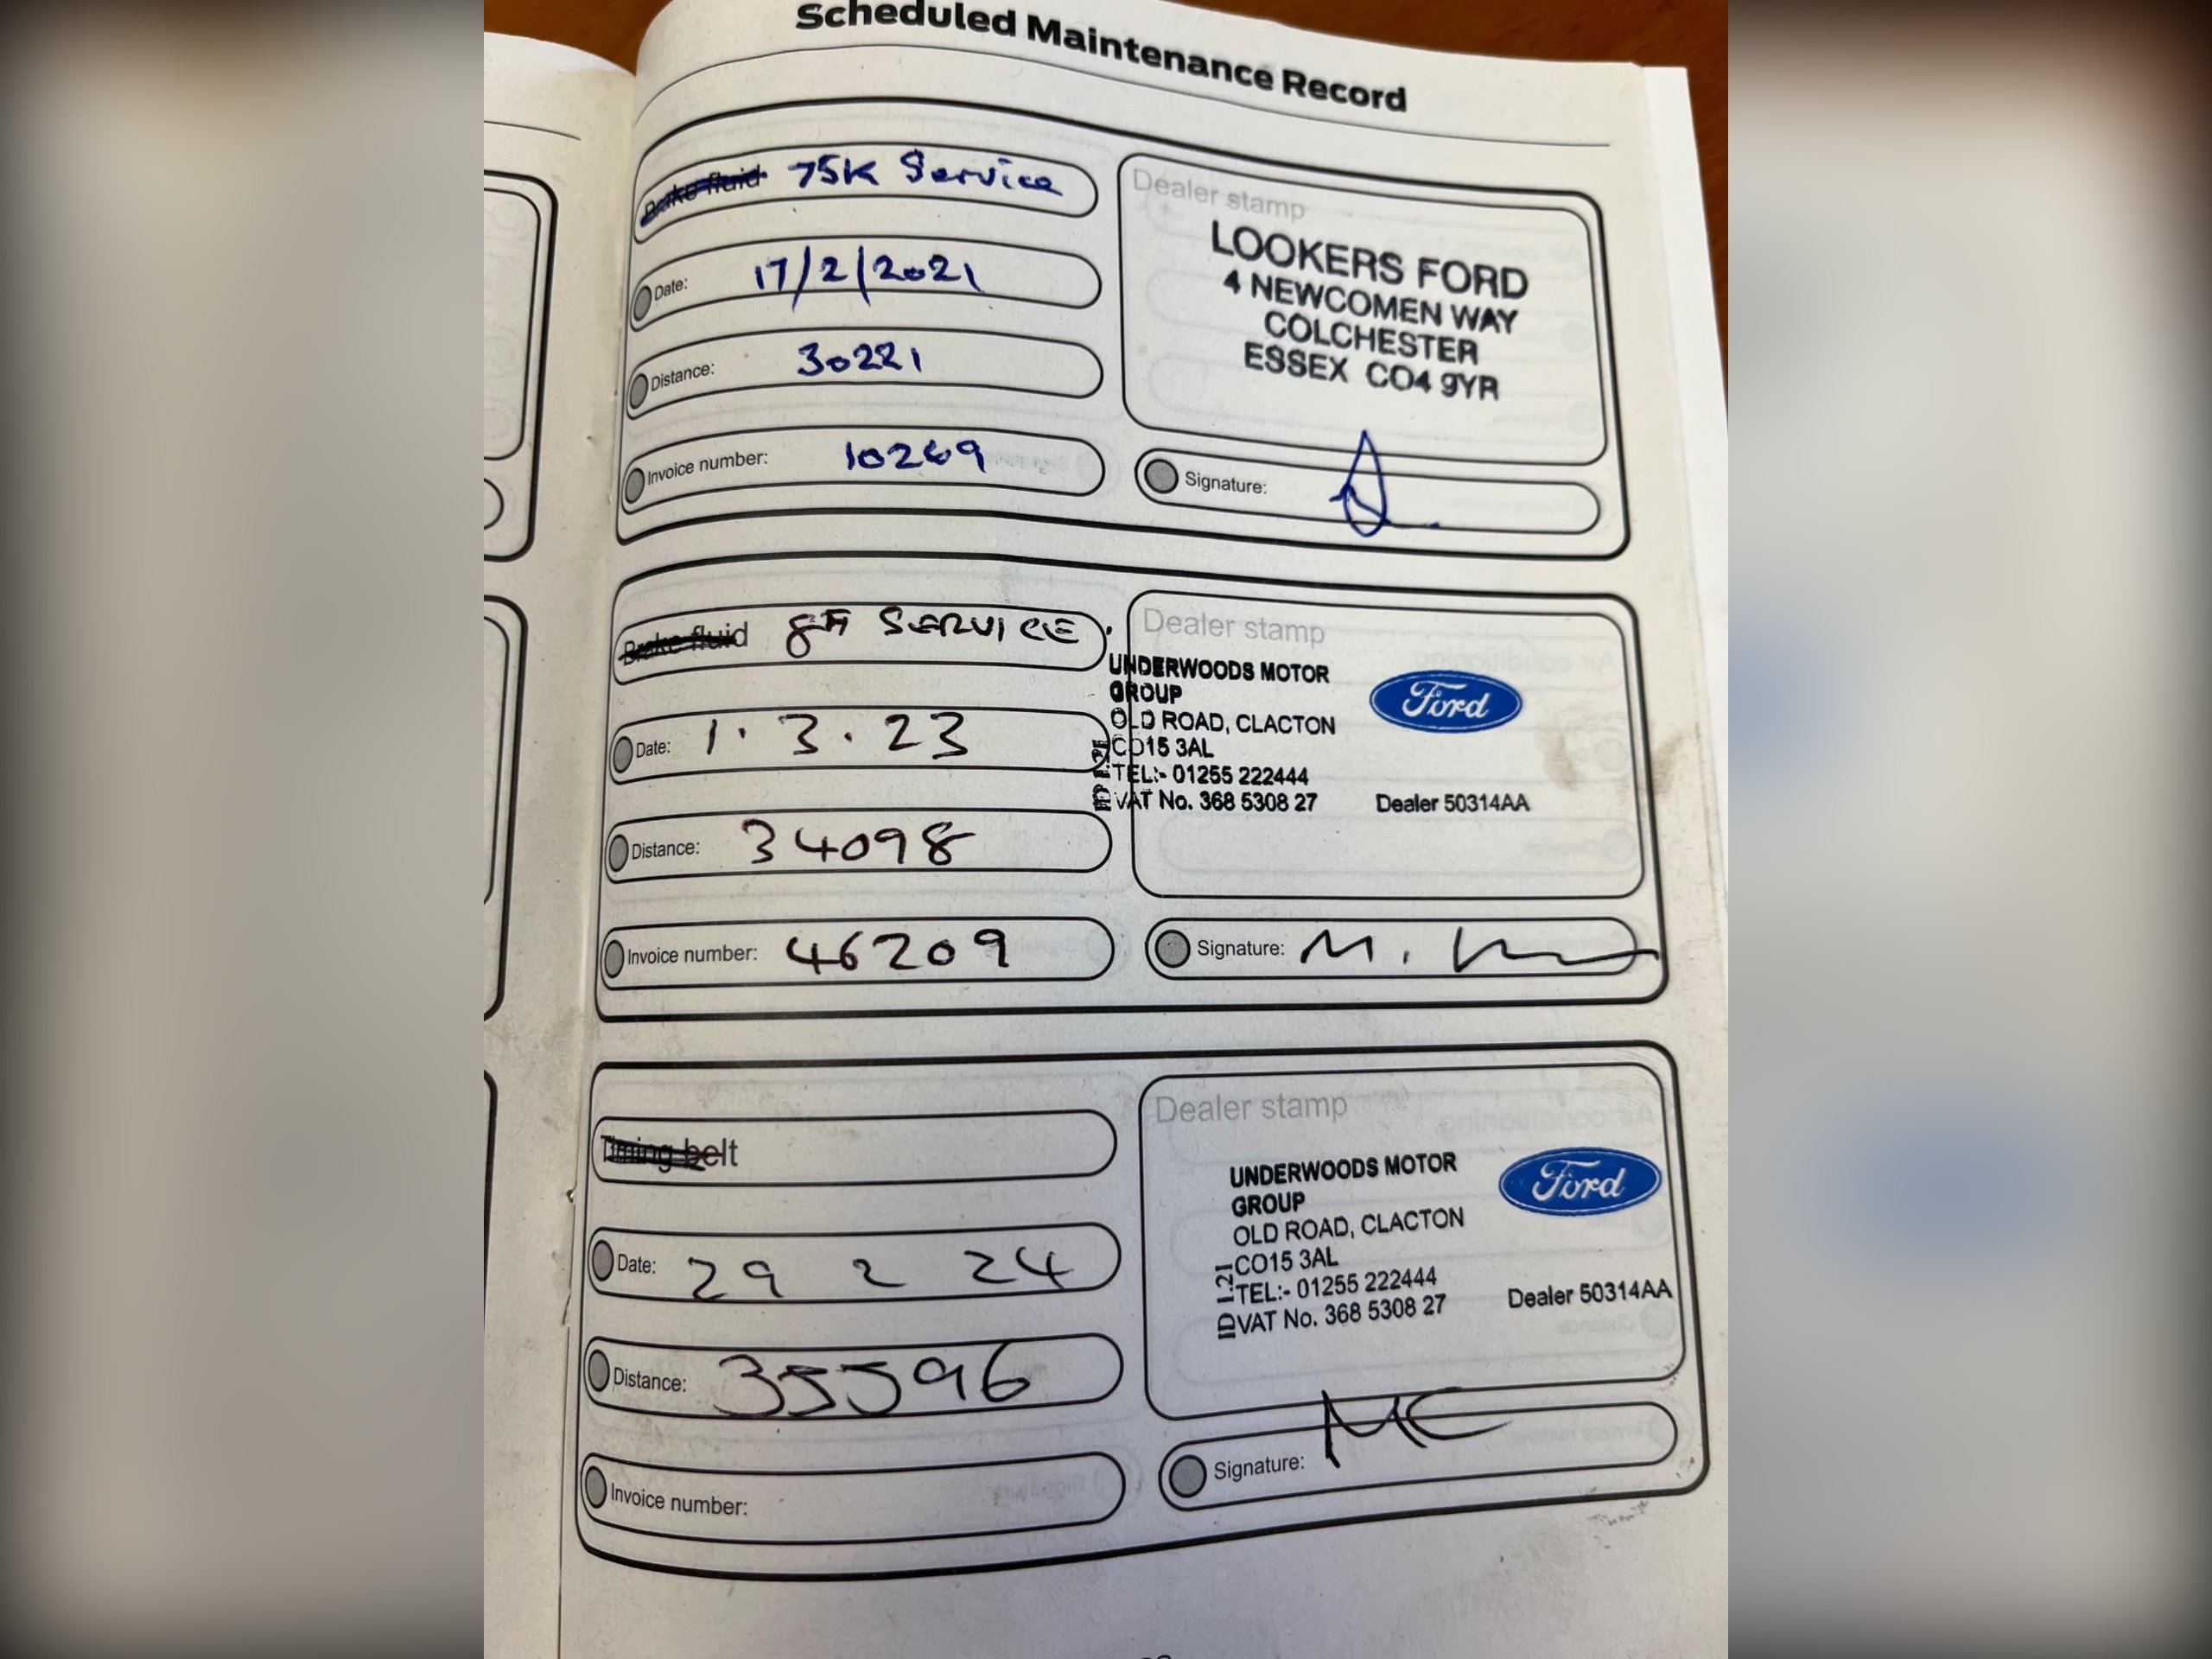 Scheduled Maintenance Record
Brake fluid 75K Service
Date: 17/2/2021
Distance: 30221
Invoice number: 10269
Dealer stamp
LOOKERS FORD
4 NEWCOMEN WAY
COLCHESTER
ESSEX CO4 9YR
Signature:
Brake fluid SERVICE
Date: 1.3.23
Distance: 34098
Invoice number: 46209
Dealer stamp
UNDERWOODS MOTOR
GROUP
OLD ROAD, CLACTON
CO15 3AL
TEL:- 01255 222444
VAT No. 368 5308 27
Ford
Dealer 50314AA
Signature: M.
Timing belt
Date: 29 2 24
Distance: 35596
Invoice number:
Dealer stamp
UNDERWOODS MOTOR
GROUP
OLD ROAD, CLACTON
CO15 3AL
TEL:- 01255 222444
VAT No. 368 5308 27
ID 1.21
Ford
Dealer 50314AA
Signature: MC